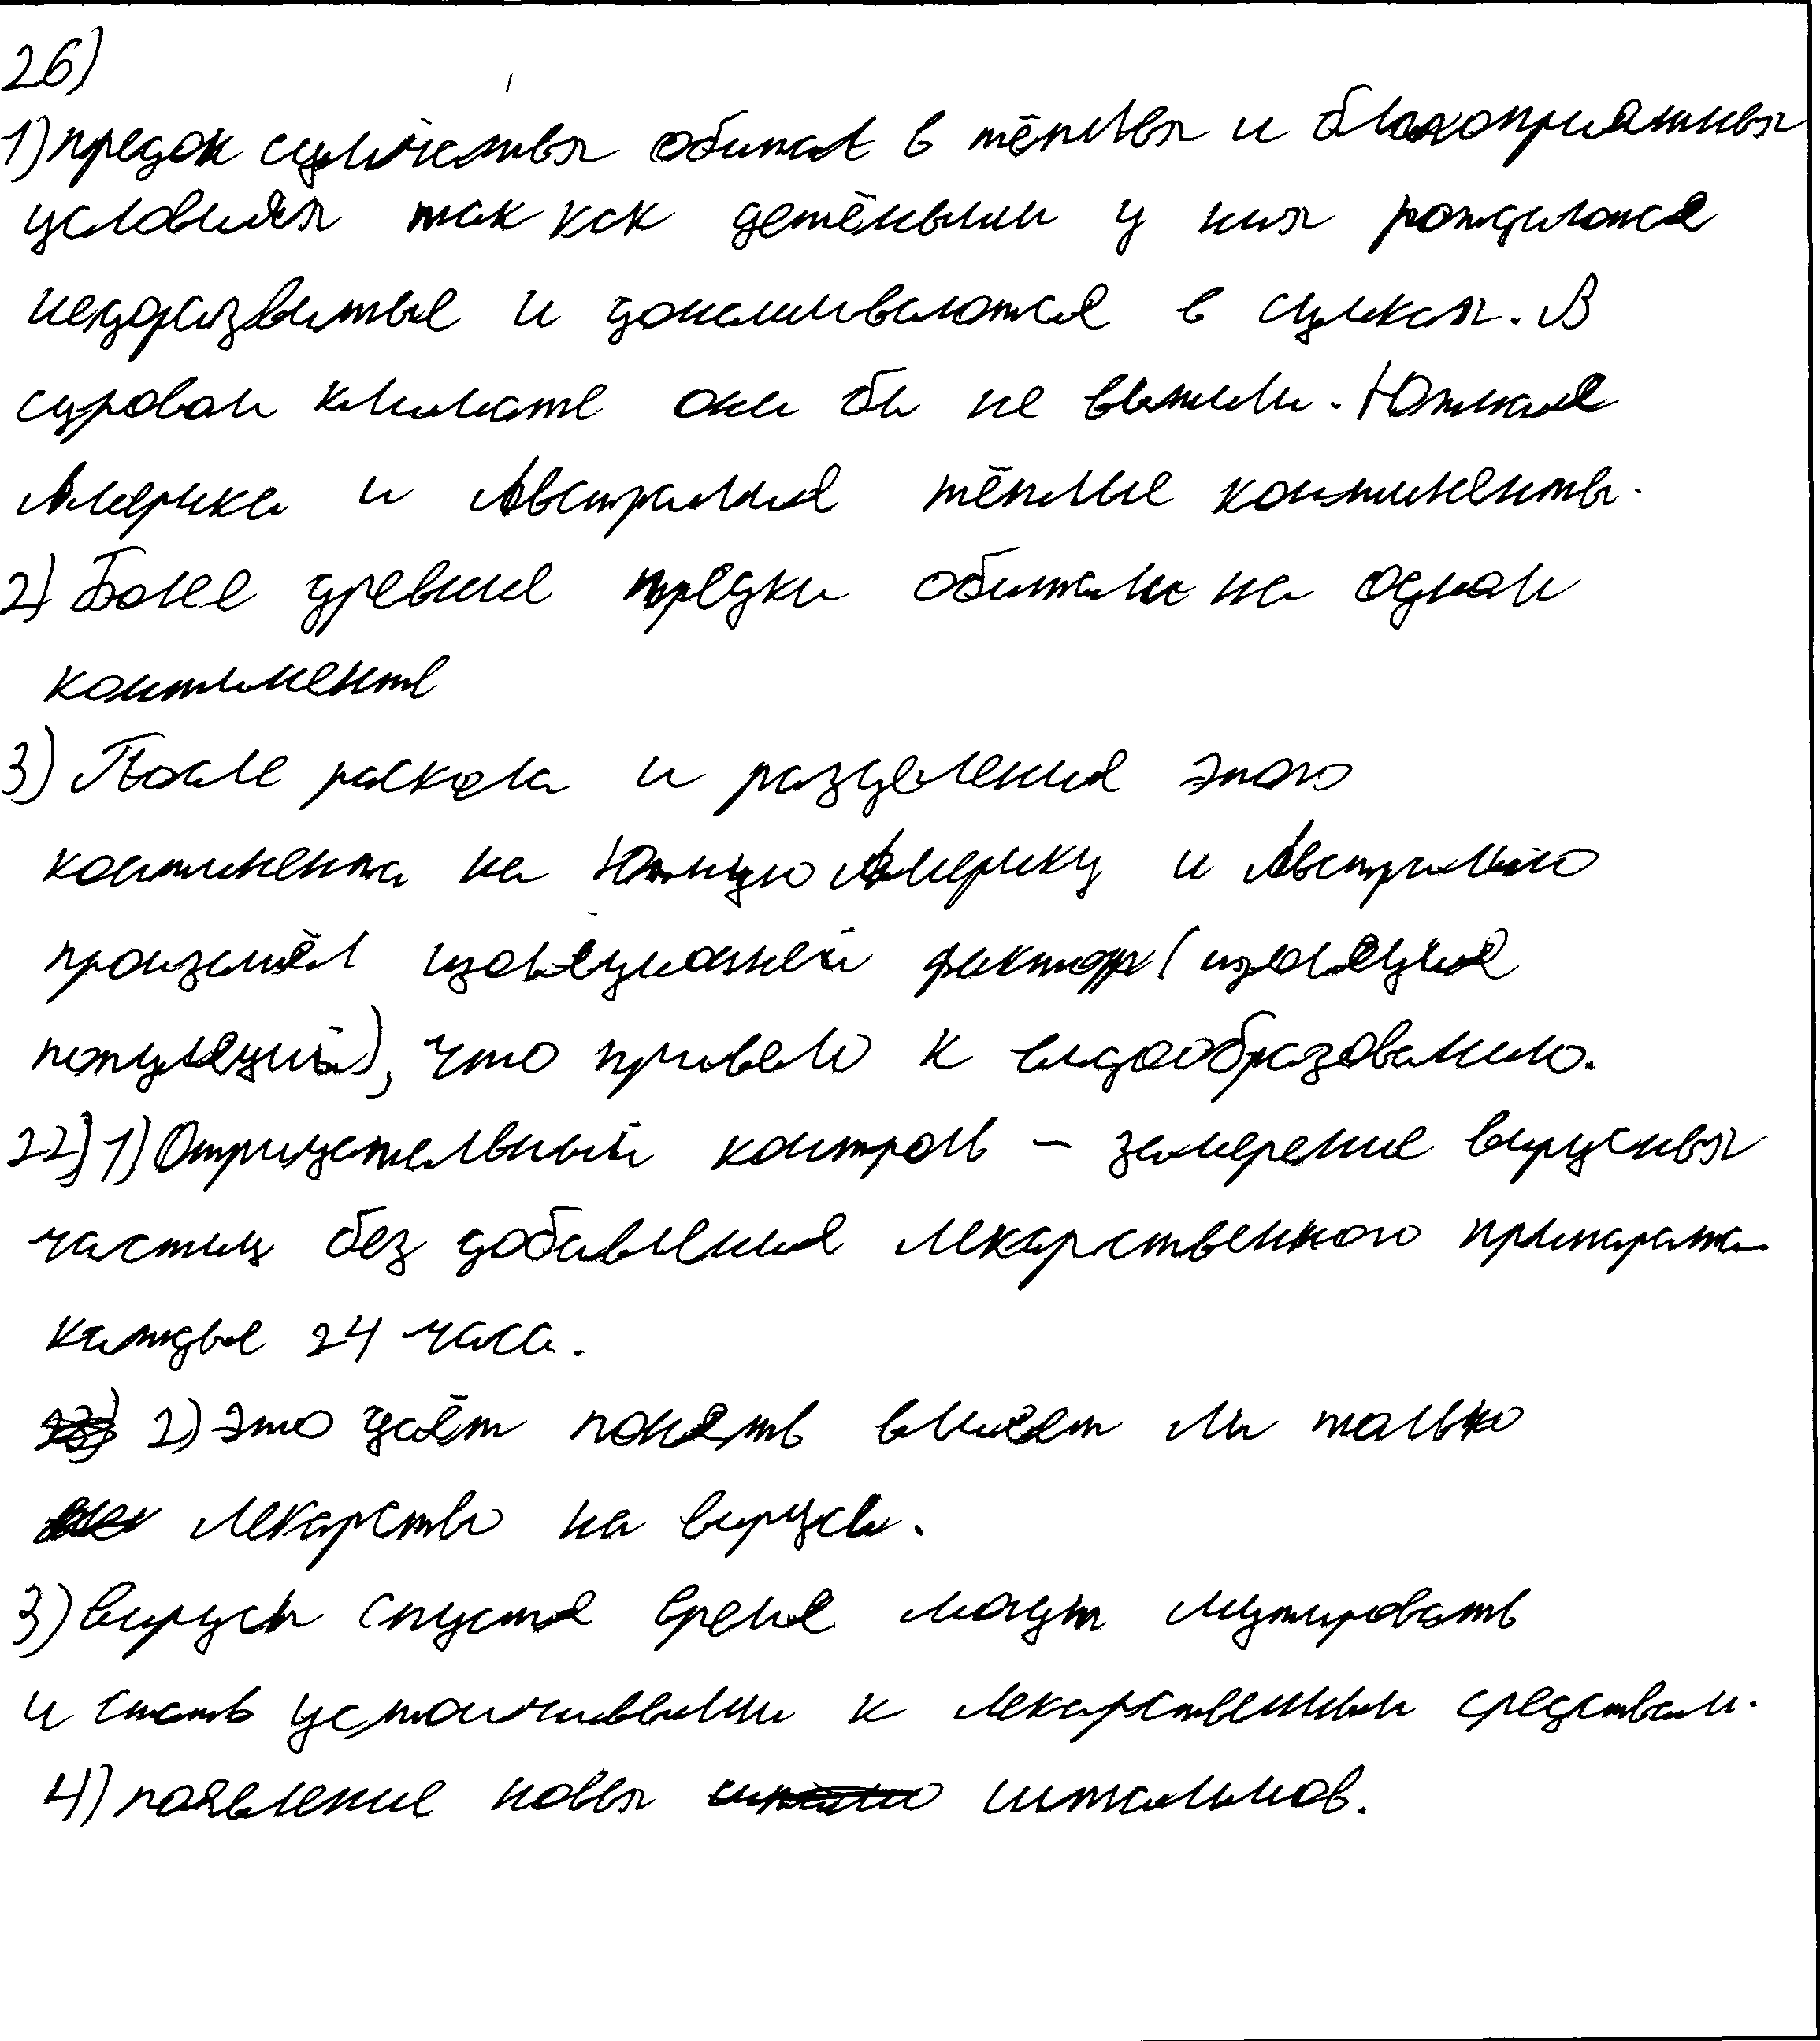 26)
1) предок сумчатых обитал в тёплых и благоприятных
условиях так как детёныши у них рождаются
недоразвитые и донашиваются в сумках. В
суровом климате они бы не выжили. Южная
Америка и Австралия тёплые континенты.
2) Более древние предки обитали на одном
континенте
3) После раскола и разделения этого
континента на Южную Америку и Австралию
произошёл изоляционный фактор (изоляция
популяций), что привело к видообразованию.
22) 1) Отрицательный контроль – замерение вирусных
частиц без добавления лекарственного препарата
каждые 24 часа.
2) это даёт понять влияет ли только
лекарство на вирусы.
3) вирусы спустя время могут мутировать
и стать устойчивыми к лекарственным средствам.
4) появление новых штаммов.